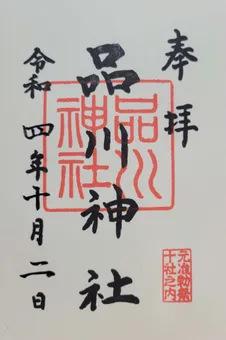 奉拝
品川神社
品川神社
元准勅祭
十社之内
令和四年十月二日